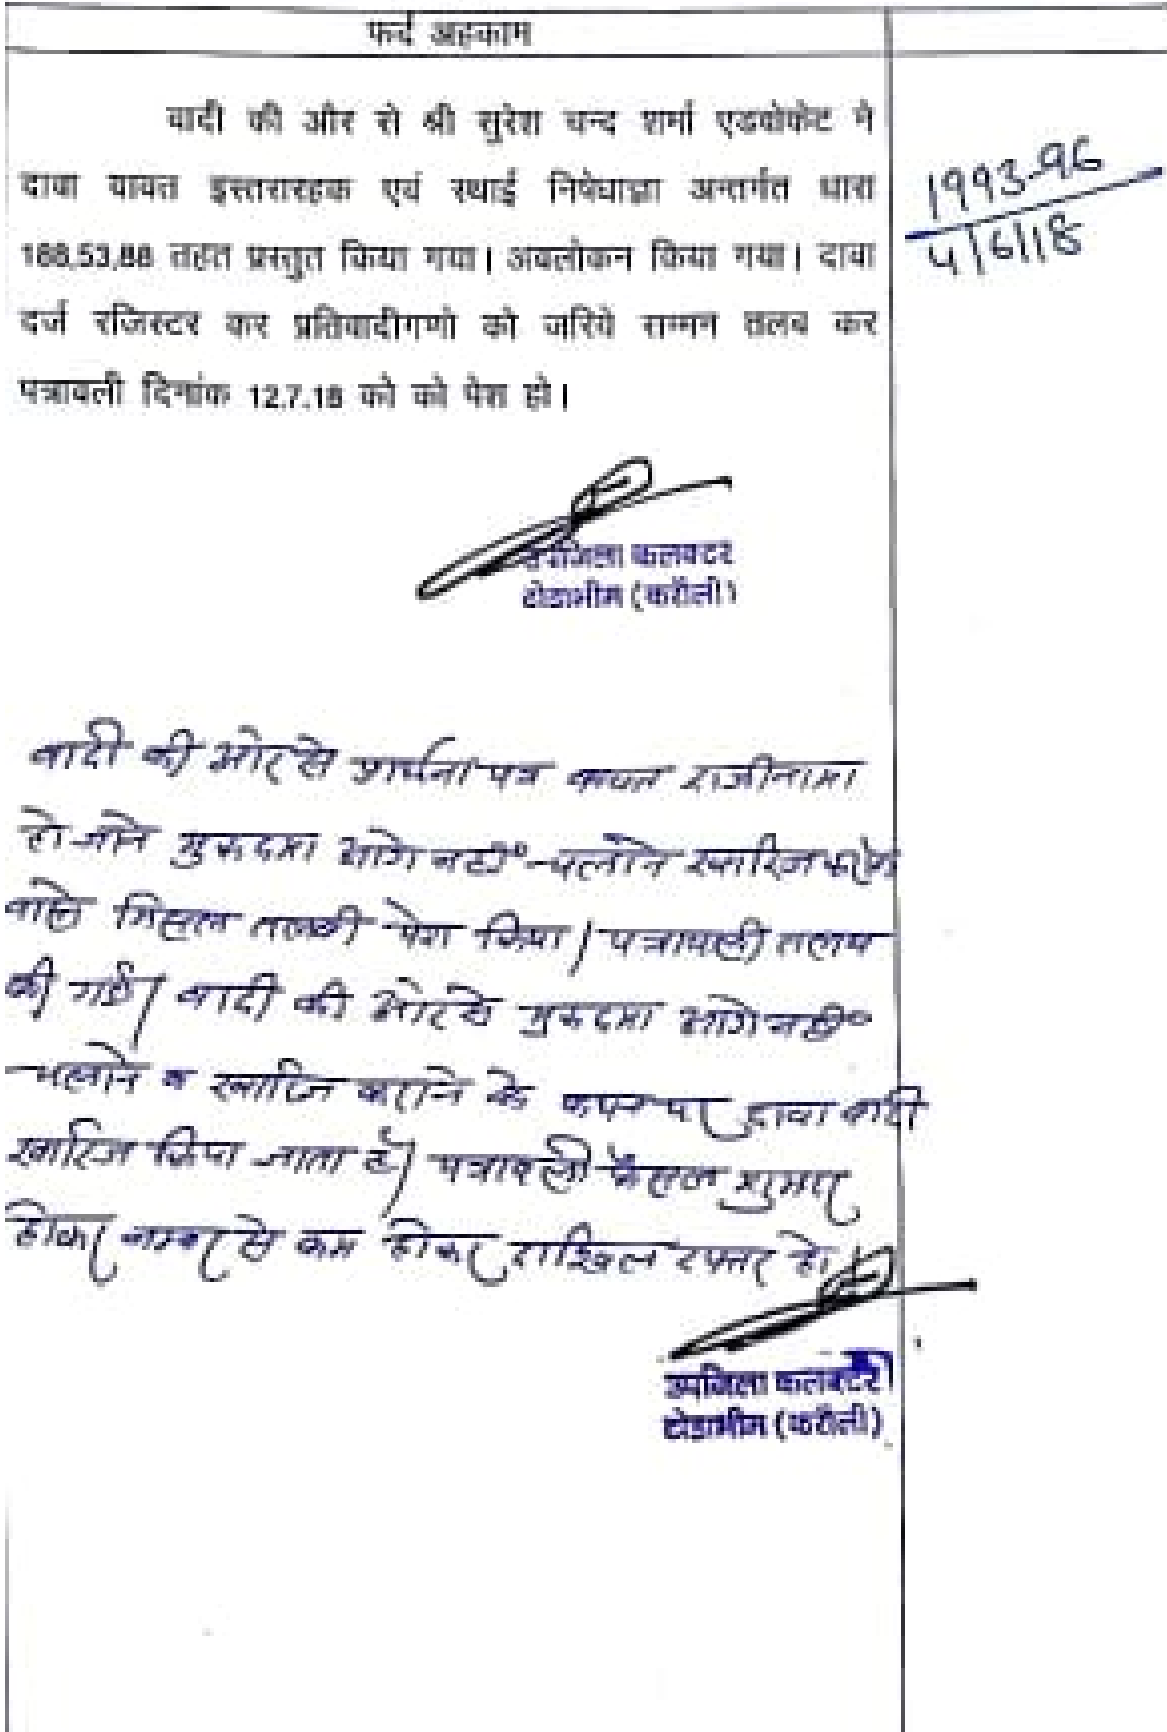 फर्द अहकाम
वादी की और से श्री सुरेश चन्द शर्मा एडवोकेट ने
दावा बावत इस्तरारहक एवं स्थाई निषेधाज्ञा अन्तर्गत धारा
188,53,88 तहत प्रस्तुत किया गया। अवलोकन किया गया। दावा
दर्ज रजिस्टर कर प्रतिवादीगणो को जरिये सम्मन तलब कर
पत्रावली दिनांक 12.7.18 को को पेश हो।
1993-96
4/6/18
उपजिला कलक्टर
टोडाभीम (करौली)
वादी की ओर से प्रार्थना पत्र बावत राजीनामा
हो जाने मुकदमा आगे नहीं चलाने खारिज
वास्ते मिसल तलबी पेश किया। पत्रावली तलब
की गई। वादी की ओर से मुकदमा आगे नहीं
चलाने व खारिज कराने के कथन पर दावा वादी
खारिज किया जाता है। पत्रावली फैसल शुमार
होकर नम्बर से कम होकर दाखिल दफ्तर हो।
उपजिला कलक्टर
टोडाभीम (करौली)